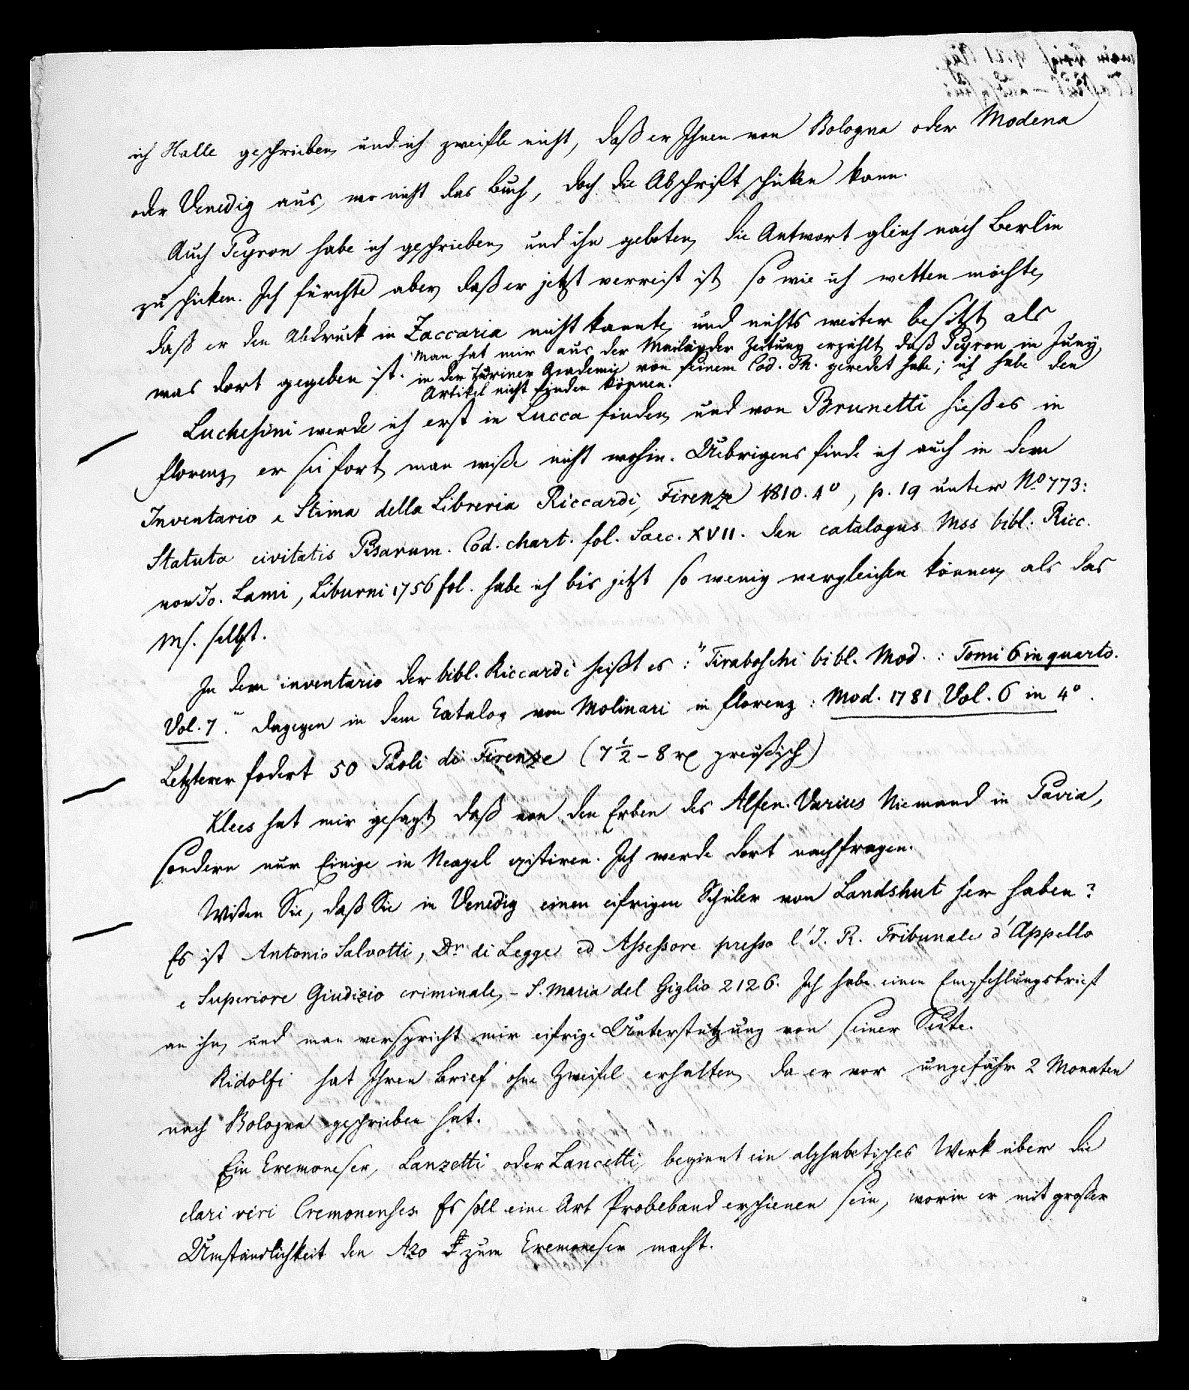 ich Halle geschrieben, und ich zweifle nicht, daß er Ihnen von Bologna oder Modena
oder Venedig aus, wo nicht das Buch, doch die Abschrift schicken kann.
Auch Peyron habe ich geschrieben, und ihn gebeten, die Antwort gleich nach Berlin
zu schicken. Ich fürchte aber, daß er jetzt verreist ist, so wie ich wetten möchte,
daß er den Abdruck in Zaccaria nicht kannte, und nichts weiter besitzt, als
was dort gegeben ist. Man hat mir aus der Mailänder Zeitung erzählt, daß Peyron im Juny,
in der Turiner Academie von seinem Cod. Th. geredet habe; ich habe den
Artikel nicht finden können.
Luchesini werde ich erst in Lucca finden, und von Brunetti hieß es in
Florenz, er sei fort, man wiße nicht wohin. Uebrigens finde ich auch in dem
Inventario e Stima della Libreria Riccardi, Firenze 1810. 4°, p. 19 unter No 773:
Statuta civitatis Pisarum. Cod. chart. fol. Saec. XVII. Den catalogus Mss bibl. Ricc.
von Jo. Lami, Liburni 1756 fol. habe ich bis jetzt so wenig vergleichen können, als das
Ms. selbst.
In dem inventario der bibl. Riccardi heißt es: "Tiraboschi bibl. Mod.: Tomi 6 in quarto.
Vol. 7." Dagegen in dem Catalog von Molinari in Florenz: Mod. 1781 Vol. 6 in 4°.
Letzterer fodert 50 Paoli di Firenze (7½ – 8 rx preußisch)
Klees hat mir gesagt, daß von den Erben des Alfen. Varius Niemand in Pavia,
sondern nur Einige in Neapel existiren. Ich werde dort nachfragen.
Wißen Sie, daß Sie in Venedig einen eifrigen Schüler von Landshut her haben?
Es ist Antonio Salvotti, Dr di Legge ed Assessore presso l'I. R. Tribunale d'Appello
e Superiore Giudizio criminale, – S. Maria del Giglio 2126. Ich habe einen Empfehlungsbrief
an ihn, und man verspricht mir eifrige Unterstützung von seiner Seite.
Ridolfi hat Ihren Brief ohne Zweifel erhalten, da er vor ungefähr 2 Monaten
nach Bologna geschrieben hat.
Ein Cremoneser, Lanzetti oder Lancetti, beginnt ein alphabetisches Werk über die
clari viri Cremonenses. Es soll eine Art Probeband erschienen sein, worin er mit großer
Umständlichkeit den Azo zum Cremoneser macht.